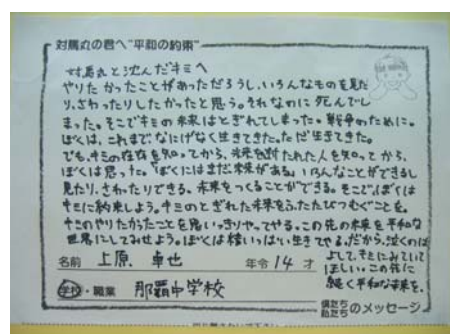 対馬丸の君へ"平和の約束"
対馬丸と沈んだキミへ
やりたかったことがあっただろうし、いろんなものを見た
り、さわったりしたかったと思う。それなのに死んでし
まった。そこでキミの未来はとぎれてしまった。戦争のために。
ぼくは、これまでなにげなく生きてきた。ただ生きてきた。
でも、キミの存在を知ってから、未来を断たれた人を知ってから、
ぼくは思った。「ぼくにはまだ未来がある。いろんなことができるし
見たり、さわったりできる。未来をつくることができる。そこで、ぼくは
キミに約束しよう。キミのとぎれた未来をふたたびつむぐことを。
キミのやりたかったことを思いっきりやってやる。この先の未来を平和な
世界にしてみせよう。ぼくは精いっぱい生きてやる。だから、泣くのは
よして、キミにみていて
ほしい。この先に
続く平和な未来を。
名前 上原 卓也 年令 14 才
学校・職業 那覇中学校
僕たち
私たち のメッセージ